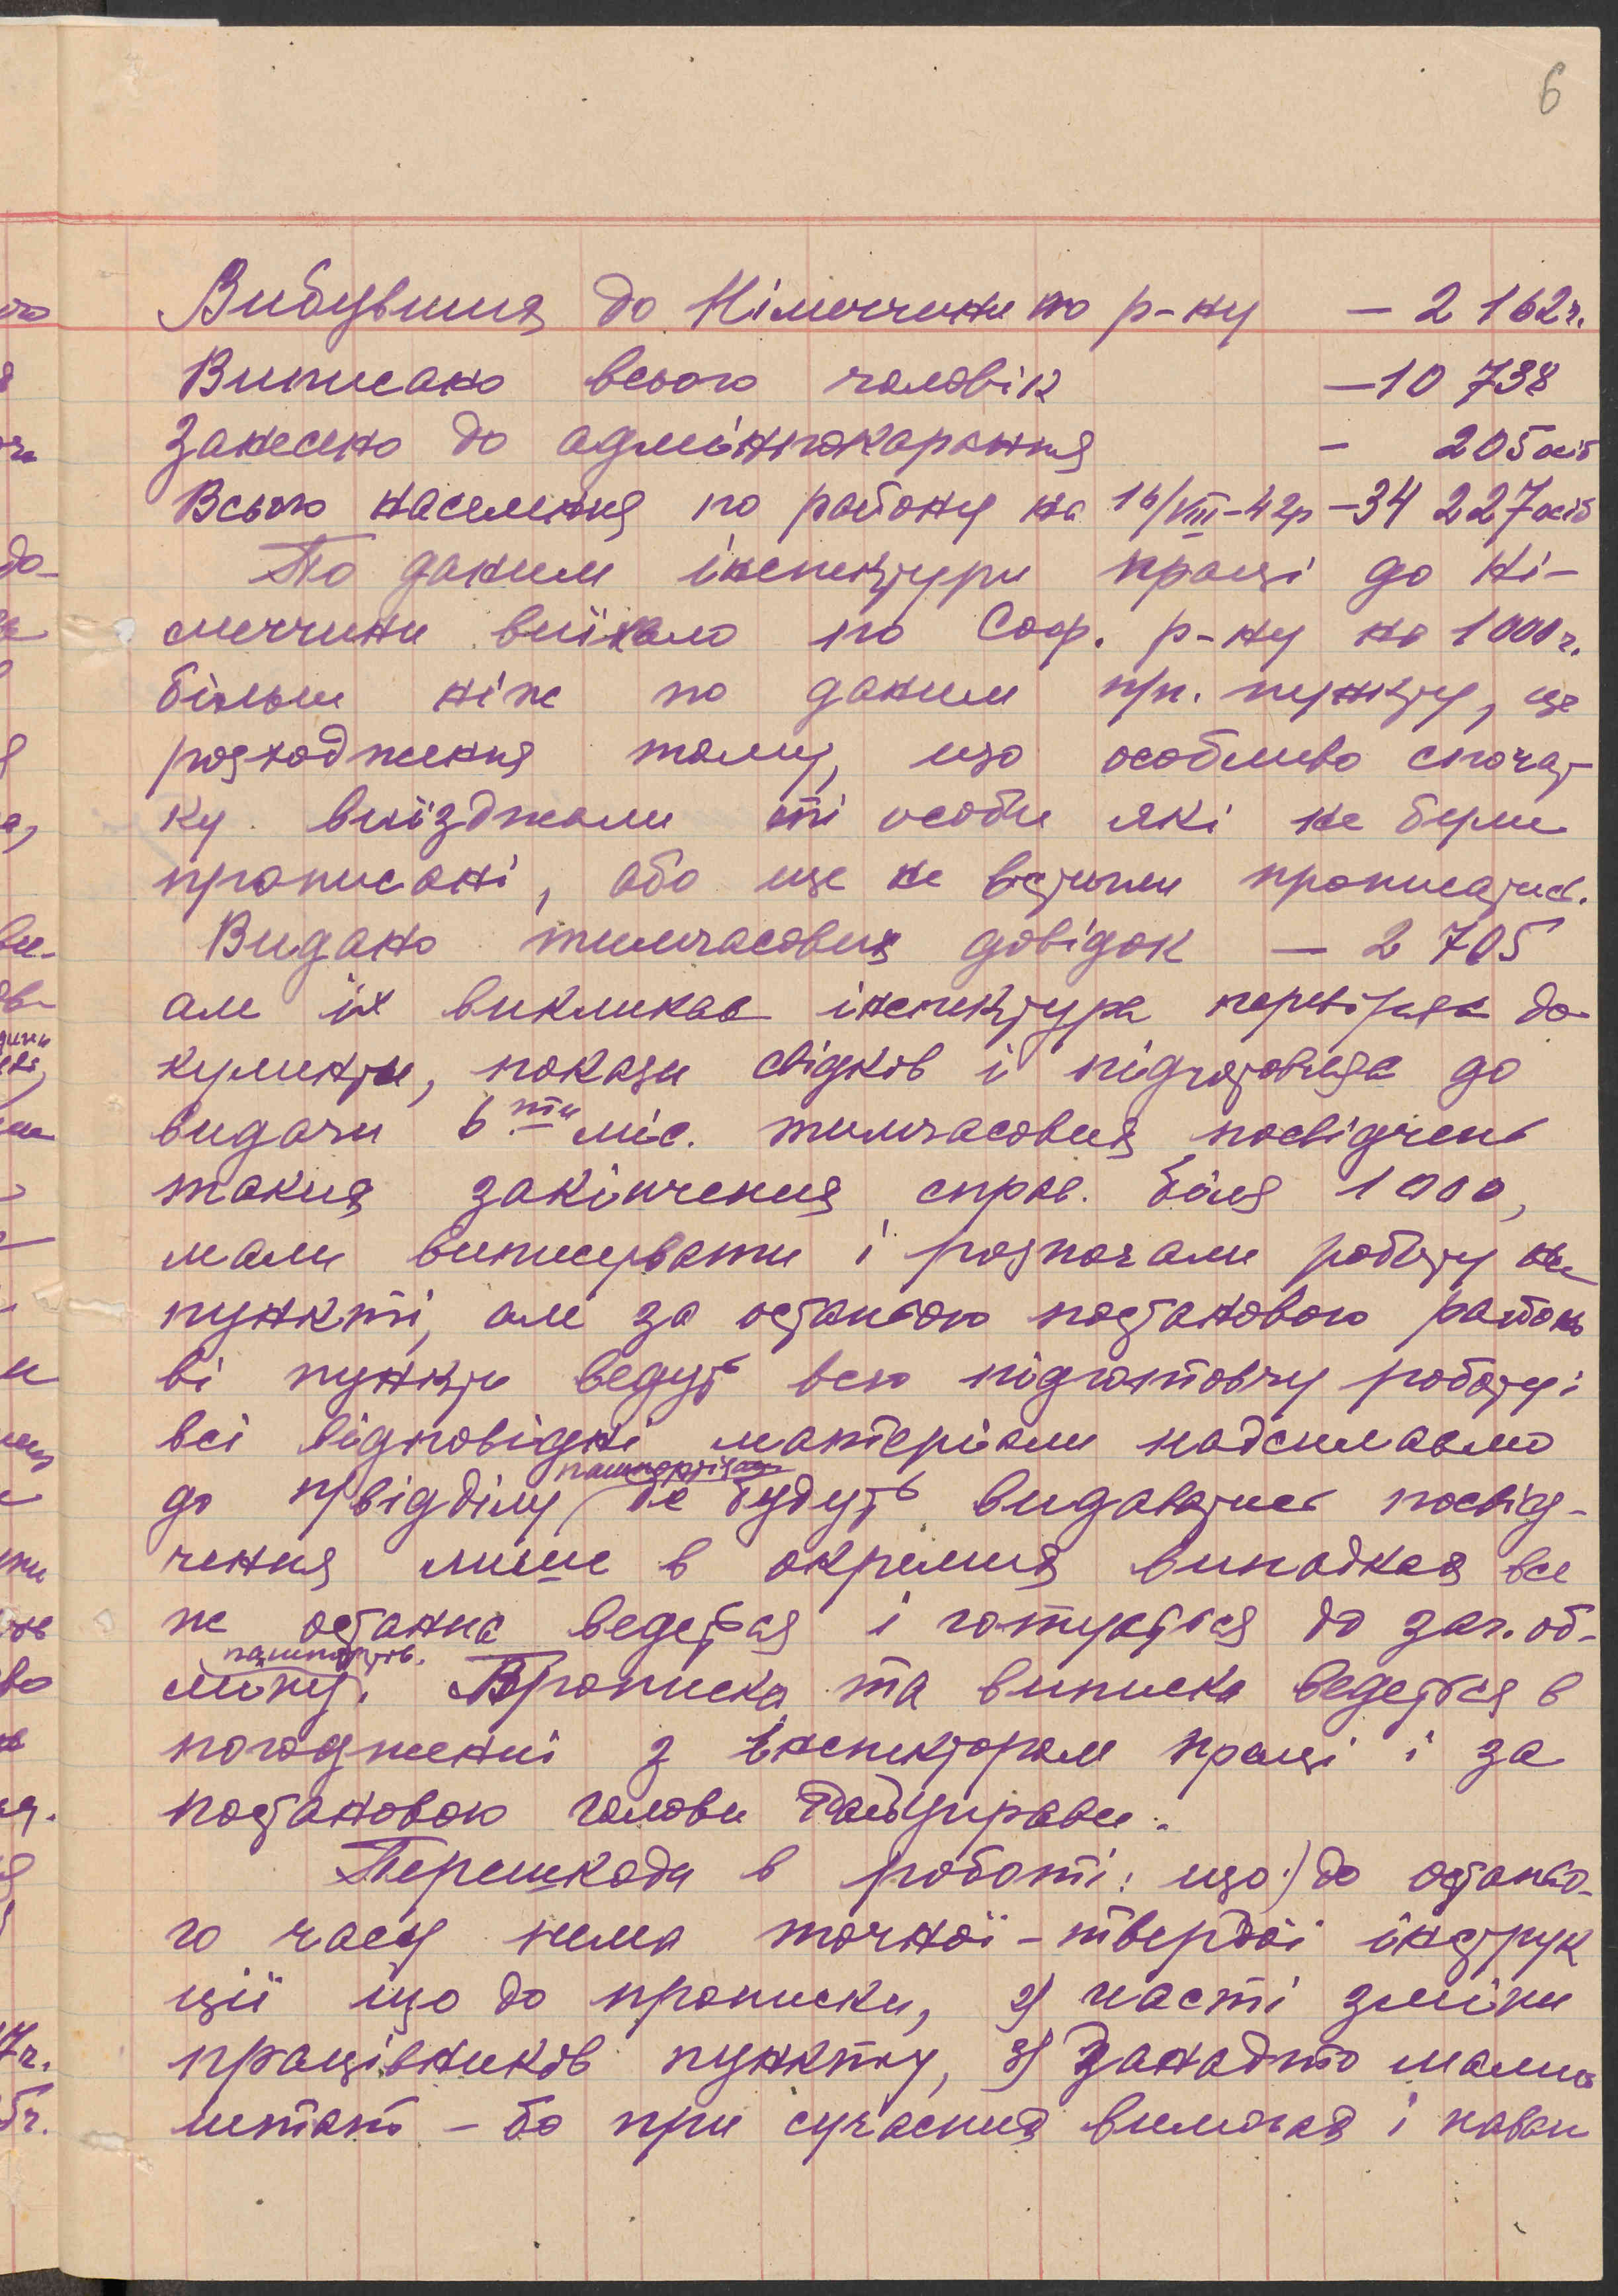 6
Вибувших до Німеччини по р-ну — 2 162 ч.
Виписано всього чоловік — 10 738
Занесено до адмінпокарання — 205 осіб
Всього населення по району на 16/VIII-42р — 34 227 осіб
По даним інспектури праці до Ні-
меччини виїхало по Соф. р-ну на 1000 ч.
більше ніж по даним п/п. пункту, це
розходження тому, що особливо спочат-
ку виїзджали ті особи які не були
прописані, або ще не встигли прописатись.
Видано тимчасових довідок — 2 705
але їх викликає інспектура перевіряє до-
кументи, покази свідків і підготовляє до
видачи 6 ти міс. тимчасових посвідчень
таких закінчених справ. біля 1000,
мали виписувати і розпочали роботу на
пункті, але за останьою постановою районо
ві пункти ведуть всю підготовчу роботу і
всі відповідні матеріали надсилаємо
до п/відділу паспортизац. де будуть видаватись посвід-
чення лише в окремих випадках все
ж останнє ведеться і готується до заг. об-
міну пашпортів. Прописка та виписка ведеться в
погодженні з інспектором праці і за
постановою голови Райуправи.
Перешкоди в роботі: що 1) до останьо-
го часу нема точної - твердої інструк
ції що до прописки, 2) часті зміни
працівників пункту, 3) Занадто малий
штат - бо при сучасних вимогах і наван